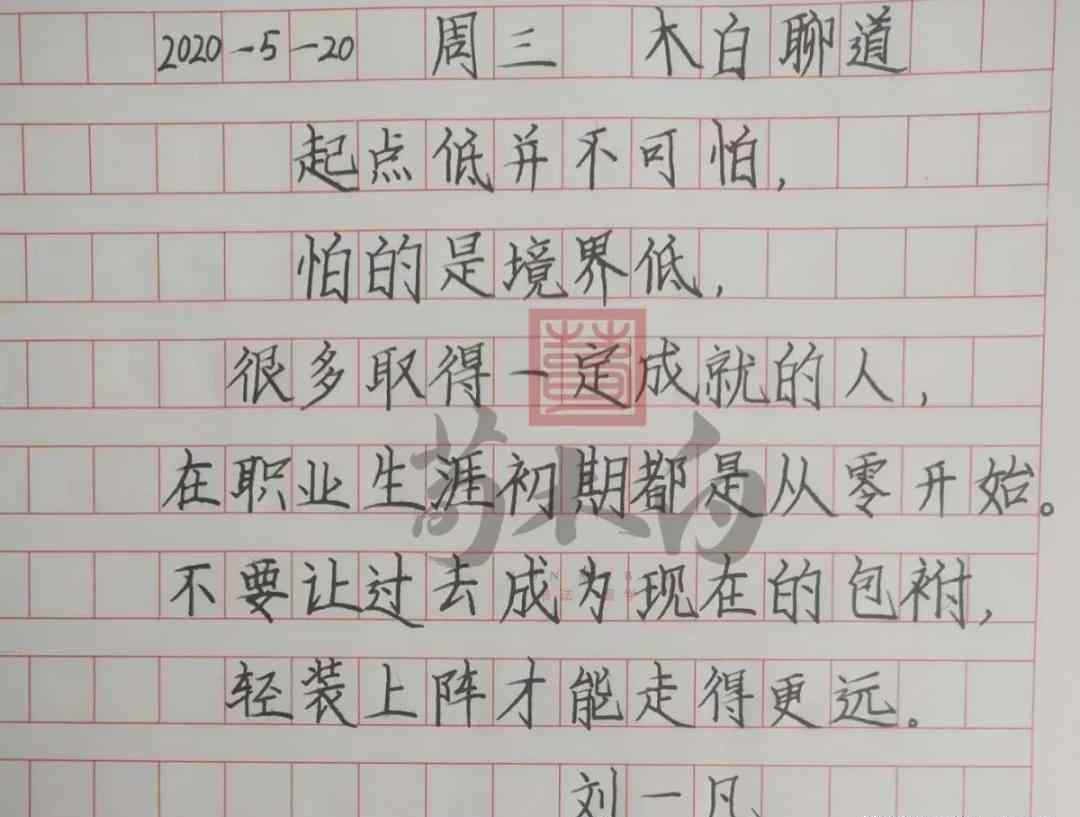 2020-5-20 周三 木白聊道
起点低并不可怕，
怕的是境界低，
很多取得一定成就的人，
在职业生涯初期都是从零开始。
不要让过去成为现在的包袱，
轻装上阵才能走得更远。
刘一凡